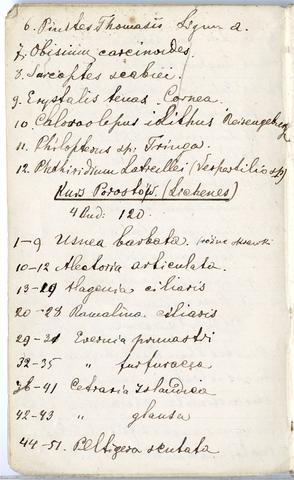 6. Pinthes Thomasii Lynn a.
7. Obisium carcinoides.
8. Sarcoptes scabiei.
9. Erystalis tenas. Cornea.
10. Chloroolepus idithus
11. Philopterus sp: Tringa.
12. Phthiridium Latreillei (Vespertilio sp)
Porostów. (Lichenes)
4 120.
1-9 Usnea barbata.
10-12 Alectoria articulata.
13-19 Hagenia ciliaris
20-28 Ramalina ciliaris
29-31 Evernia prunastri
32-35 " furfuracea
36-41 Cetraria Islandica
42-43 " glauca
44-51. Peltigera scutata